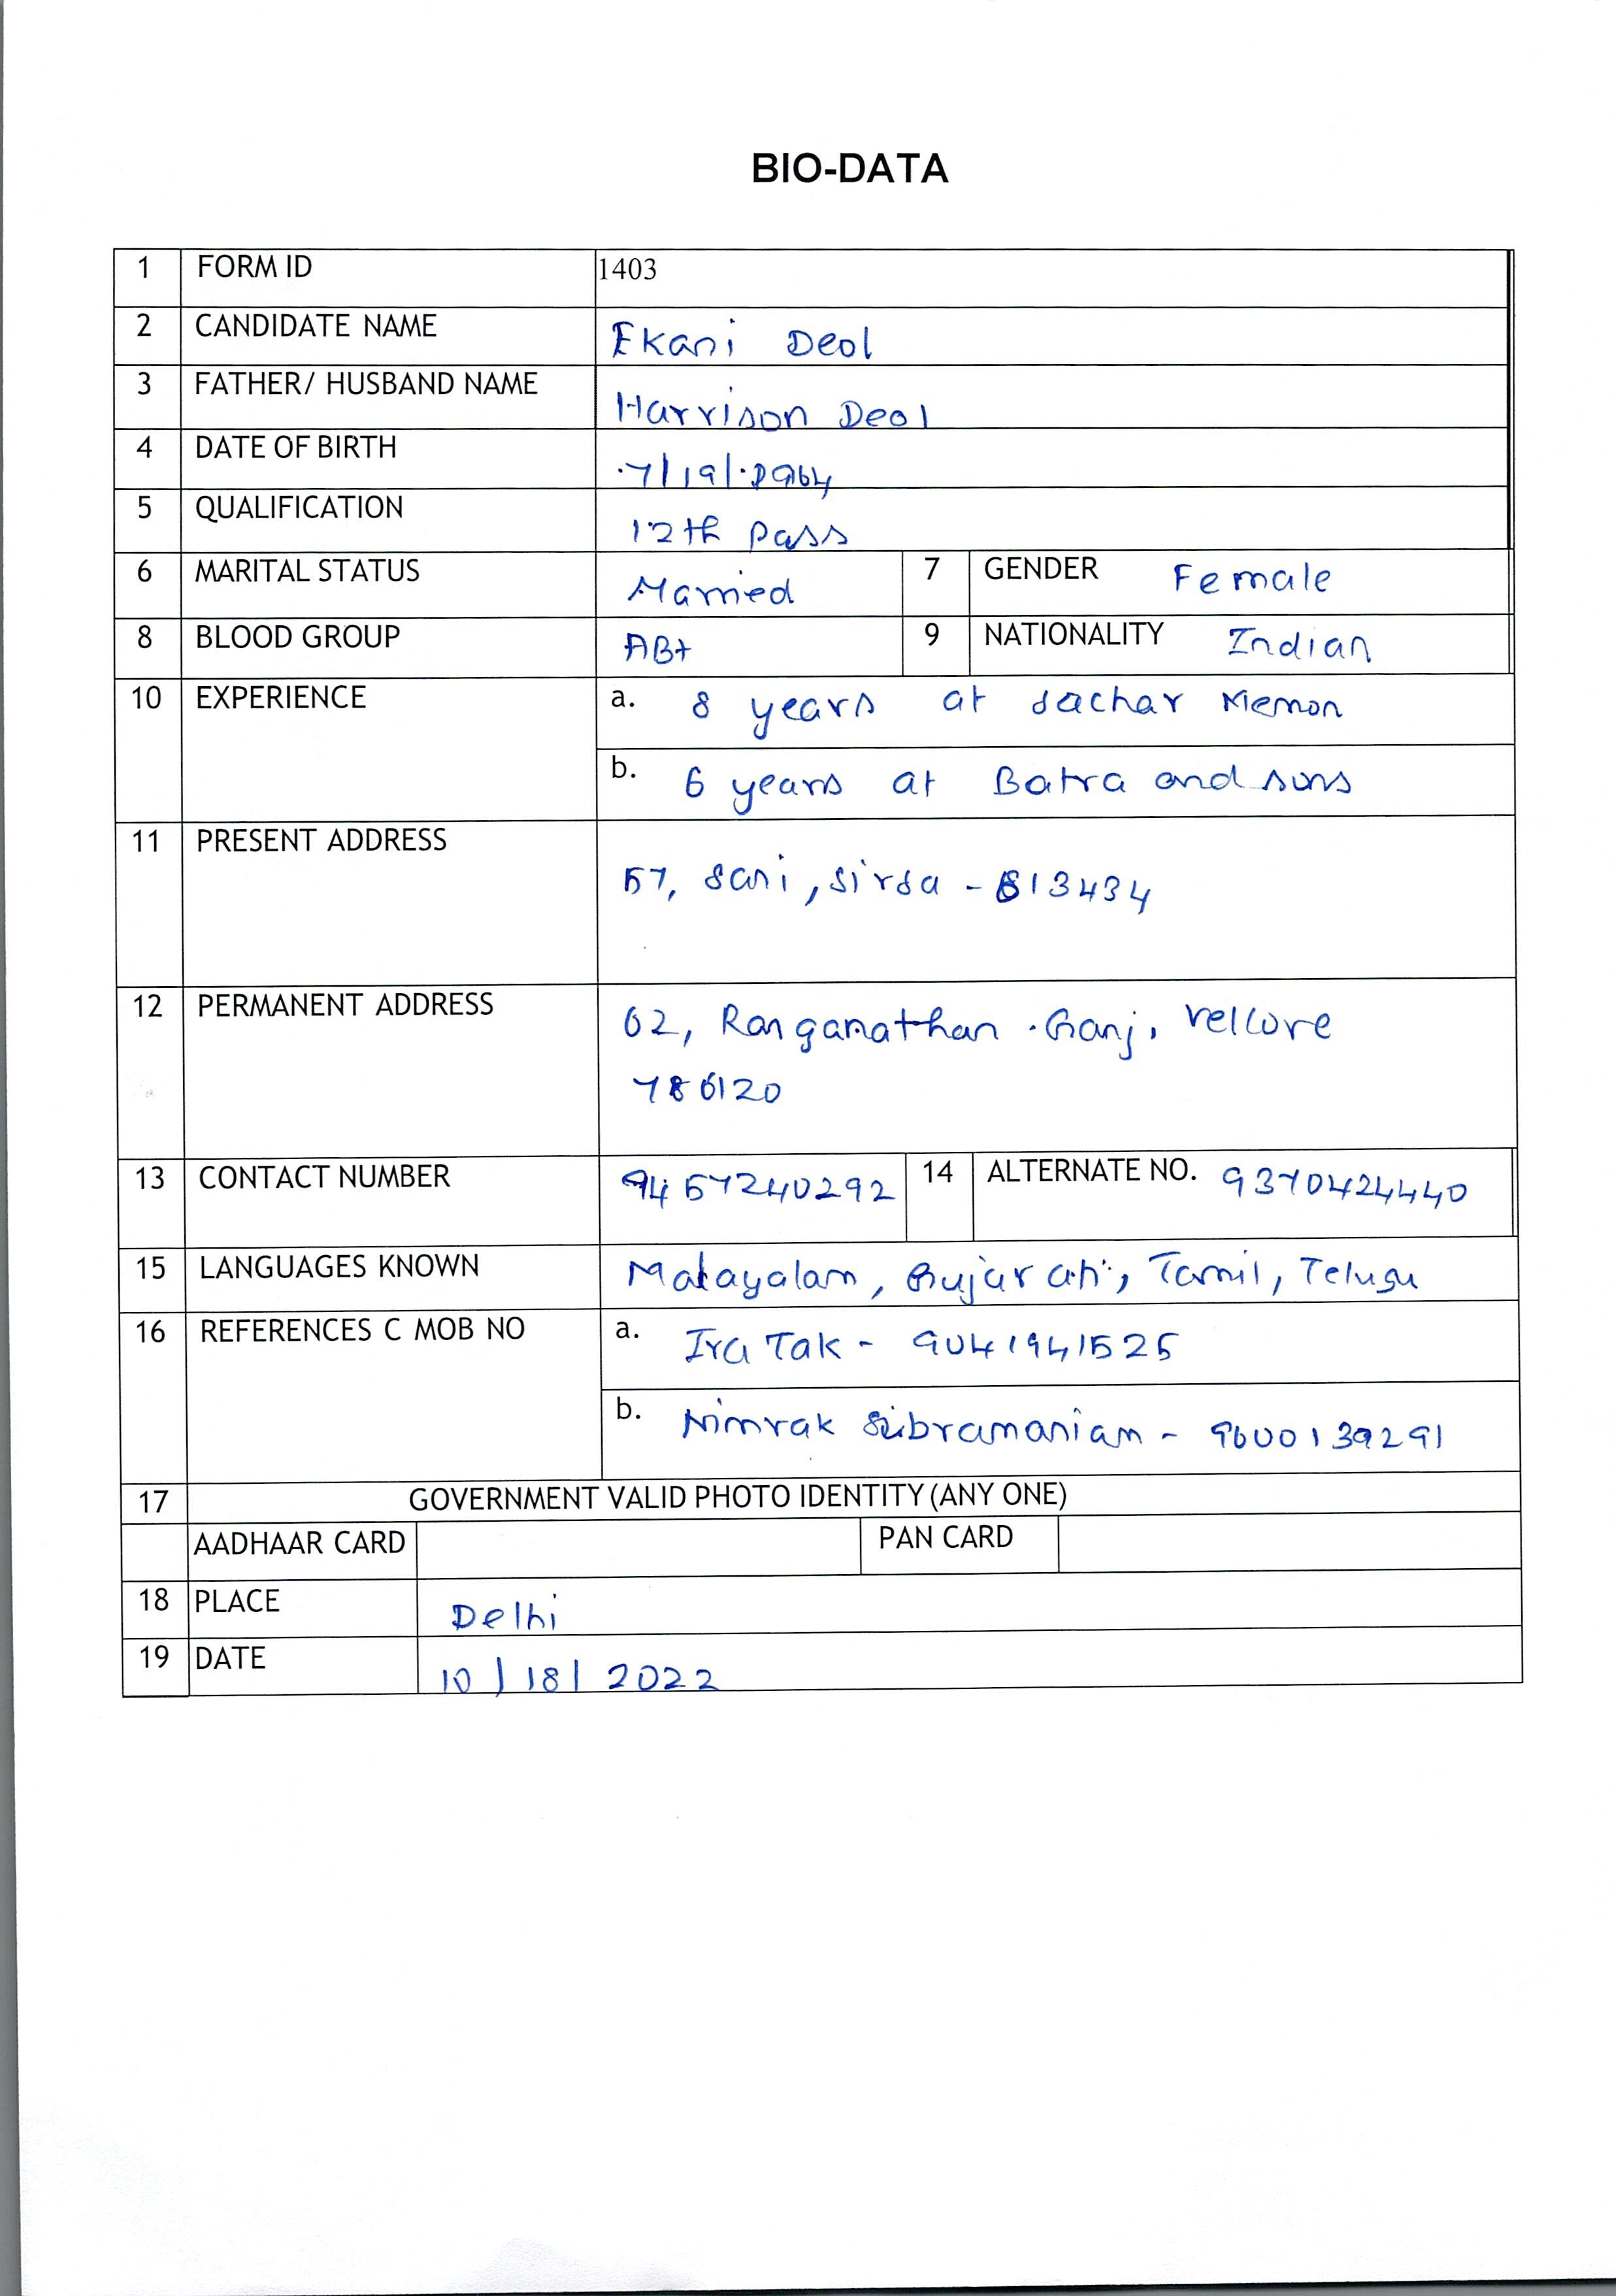 BIO-DATA
1 FORM ID 1403
2 CANDIDATE NAME Ekani Deol
3 FATHER/ HUSBAND NAME Harrison Deol
4 DATE OF BIRTH 7/19/
5 QUALIFICATION 12th pass
6 MARITAL STATUS Married 7 GENDER Female
8 BLOOD GROUP AB+ 9 NATIONALITY Indian
10 EXPERIENCE a. 8 years at Sachar Memon
b. 6 years at Batra and sons
11 PRESENT ADDRESS
57, Sani, Sirsa - 613434
12 PERMANENT ADDRESS 62, Ranganathan Ganj, Vellore
786120
13 CONTACT NUMBER 9457240292 14 ALTERNATE NO. 9370424440
15 LANGUAGES KNOWN Malayalam, Gujarati, Tamil, Telugu
16 REFERENCES C MOB NO a. Ira Tak - 9041941525
b. Nimrak Subramaniam - 9600139291
17 GOVERNMENT VALID PHOTO IDENTITY (ANY ONE)
AADHAAR CARD PAN CARD
18 PLACE Delhi
19 DATE 10/18/2022